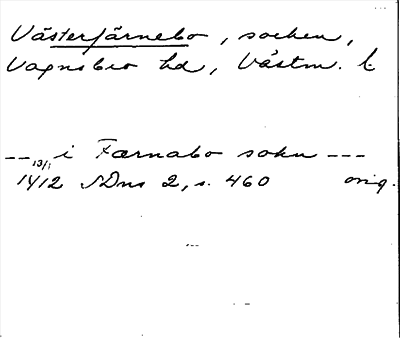 Västerfärnebo, socken,
Vagnsbro hd, Västm. l.
--- i Færnabo sokn ---
13/1 1412 SDns 2, s. 460 orig.